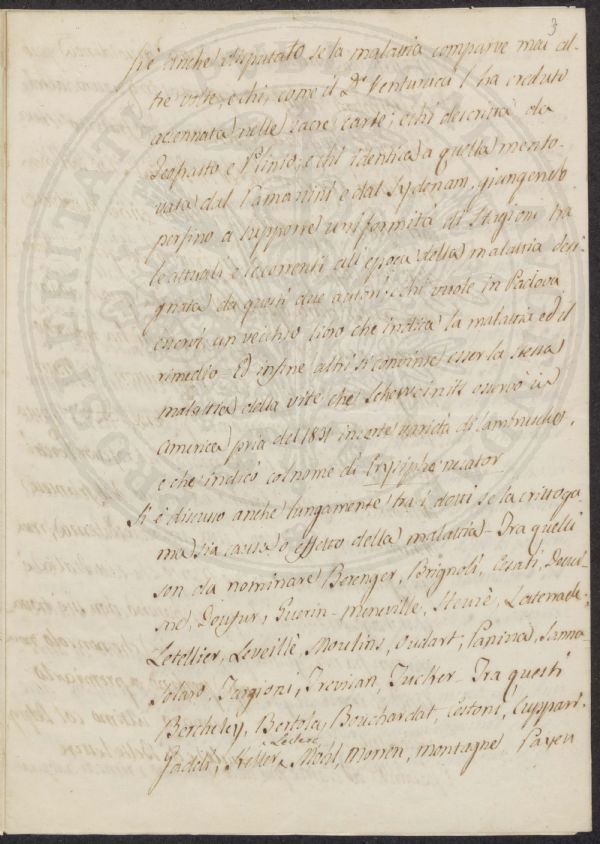 3
Si è anche disputato se la malattia comparve mai al-
tre volte, e chi, come il Dr. Venturucci l'ha creduto
accennata nelle sacre carte; e chi descritta da
Teofrasto e Plinio; e chi identica a quella mento-
vata dal Ramazzini e dal Sydenam, giungendo
persino a supporre uniformità di Stagioni tra
le attuali e le correnti all'epoca della malattia desi-
gnata da questi due autori; chi vuole in Padova
esservi un vecchio libro che indica la malattia ed il
rimedio - Ed infine altri si convinse esser la stessa
malattia della vite che Schweinits osservò in
America pria del 1834 in certe varietà di lambrusche,
e che indicò col nome di Erysiphe necator
Si è discusso anche lungamente tra i dotti se la crittoga
ma sia causa o effetto della malattia - Tra quelli
son da nominare Berenger, Brignoli, Cesati,
Doufur, Guerin-meneville,
Letellier, Leveillè, Moulins, Oudart, Panizzi, Sanna
Solaro, Targioni, Trevisan, Tucker - Tra questi
Bercheley, Bertola, Bouchardat, Cestoni, Cuppari
Leclerc
Gadoli, Keller, Mohl, Morren, Montagne Payen